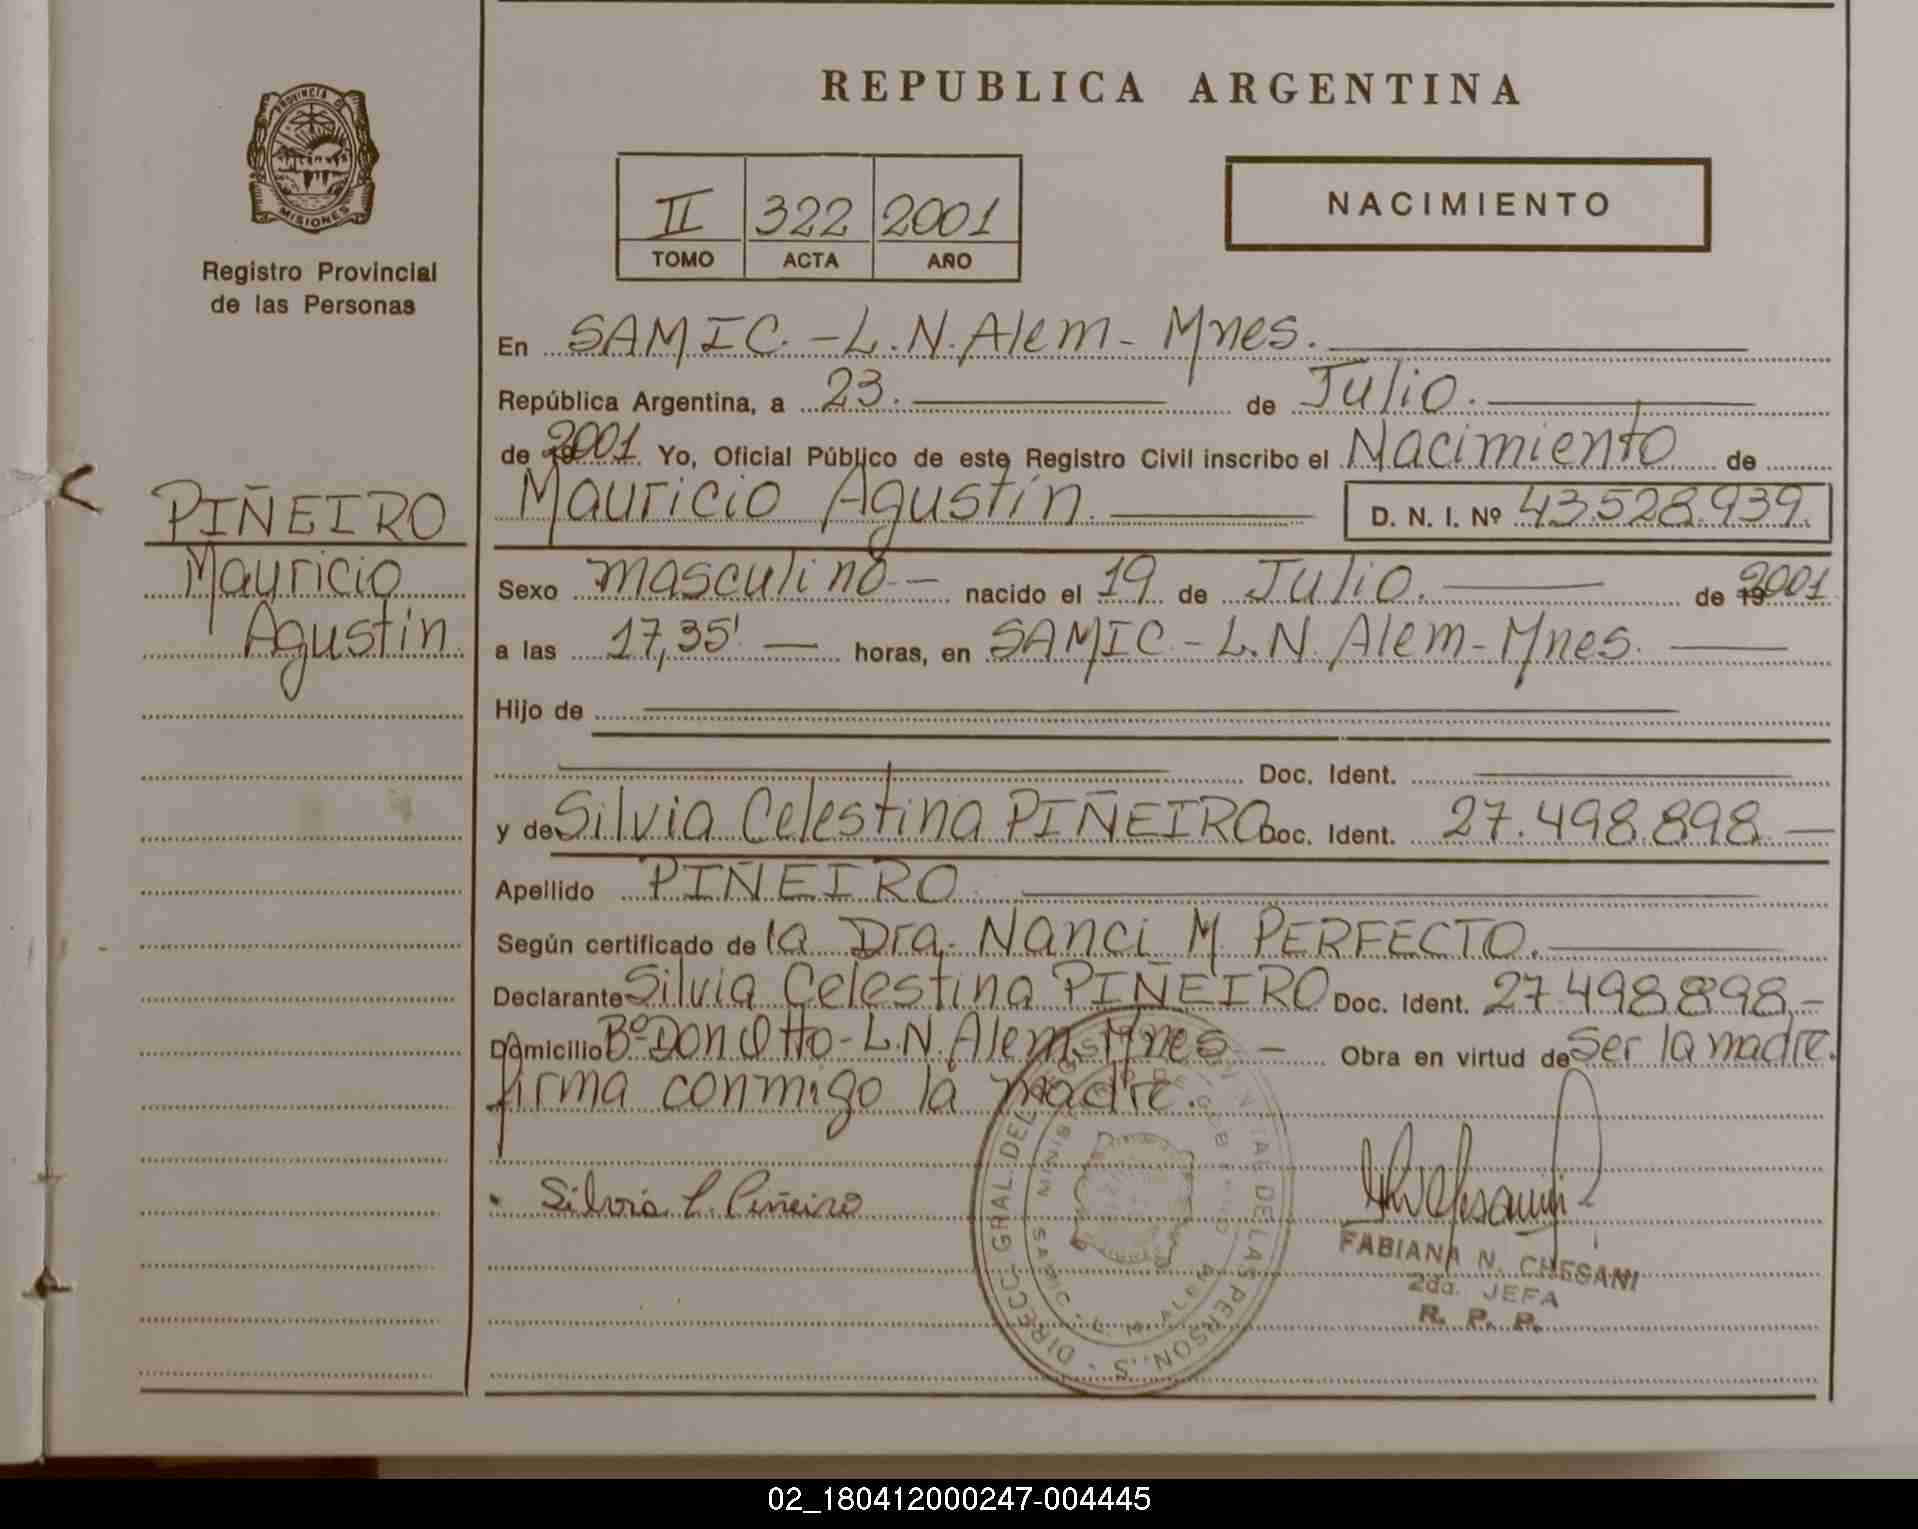 REPUBLICA ARGENTINA
PROVINCIA D
MISIONES
Registro Provincial
de las Personas
II 322 2001
TOMO ACTA AÑO
NACIMIENTO
PIÑEIRO
Mauricio
Agustín
En SAMIC.-L.N.Alem-Mnes.
República Argentina, a 23. de Julio.
de 2001 Yo, Oficial Público de este Registro Civil inscribo el Nacimiento de
Mauricio Agustín. D. N. I. Nº 43.528.939.
Sexo masculino- nacido el 19 de Julio. de 19 2001
a las 17,35' horas, en SAMIC.-L.N.Alem-Mnes.
Hijo de
Doc. Ident.
y de Silvia Celestina PIÑEIRO Doc. Ident. 27.498.898-
Apellido PIÑEIRO.
Según certificado de la Dra. Nanci M. PERFECTO.
Declarante Silvia Celestina PIÑEIRO Doc. Ident. 27.498.898,-
Domicilio Bº Don Otto-L.N.Alem-Mnes- Obra en virtud de Ser la madre.
firma conmigo la madre.
Silvia C. Piñeiro
FABIANA N. CHESANI
2da. JEFA
R. P. P.
02_180412000247-004445